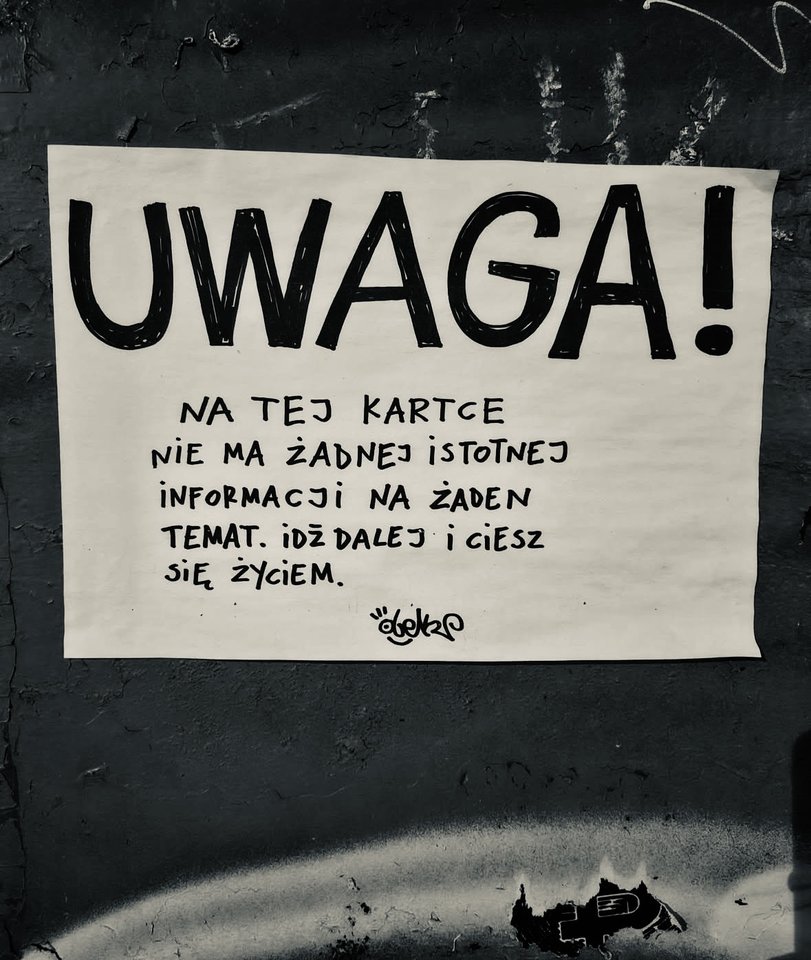 UWAGA!
NA TEJ KARTCE
NiE MA ŻADNEJ iSTOTNEJ
iNFORMACJi NA ŻADEN
TEMAT. iDŹ DALEJ i CiESZ
SiĘ ŻYCiEM.